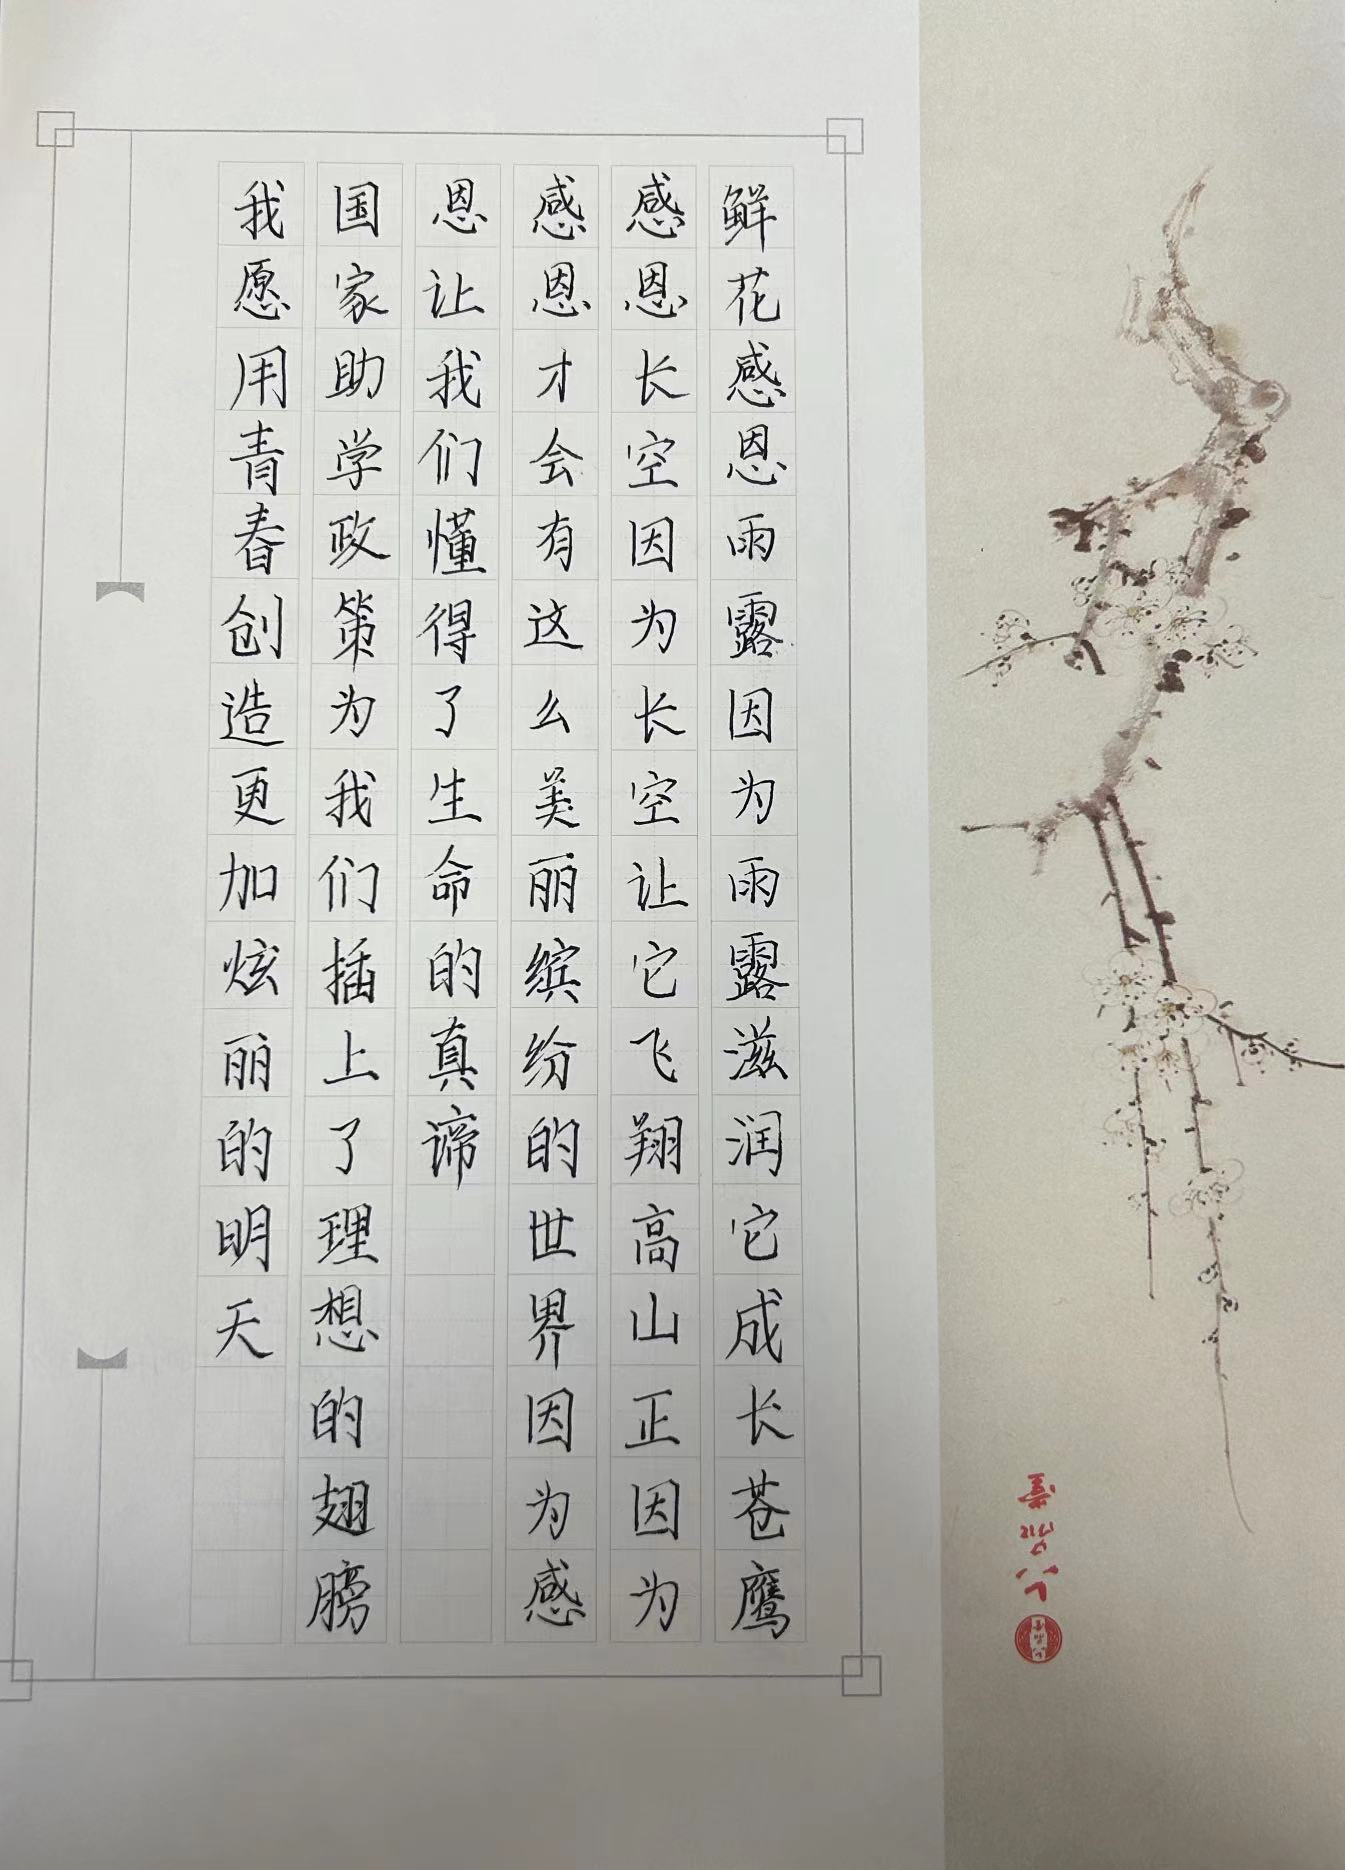 鲜花感恩雨露因为雨露滋润它成长苍鹰
感恩长空因为长空让它飞翔高山正因为
感恩才会有这么美丽缤纷的世界因为感
恩让我们懂得了生命的真谛
国家助学政策为我们插上了理想的翅膀
我愿用青春创造更加炫丽的明天